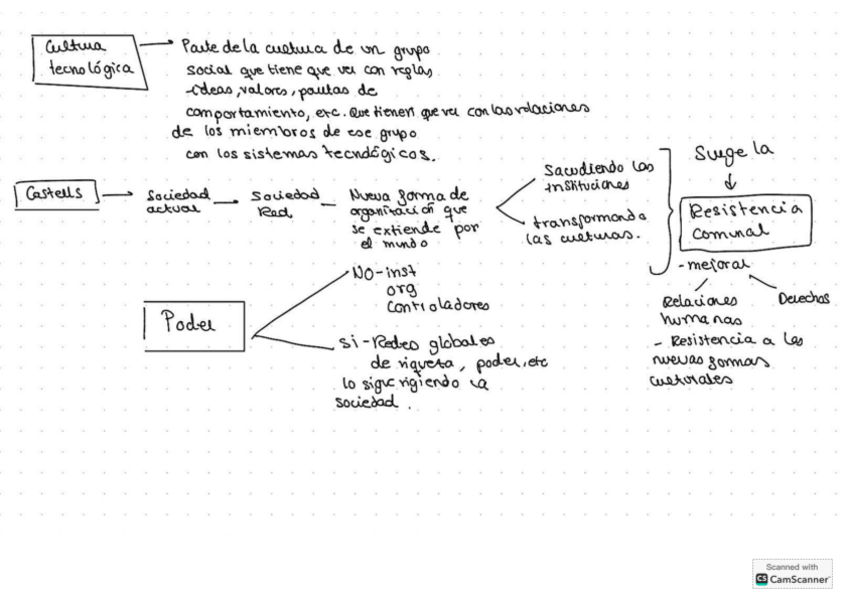 Cultura
tecnológica
Parte de la cultura de un grupo
social que tiene que ver con reglas
-ideas, valores, pautas de
comportamiento, etc. Que tienen que ver con las relaciones
de los miembros de ese grupo
con los sistemas tecnológicos.
Castells
Sociedad
actual
Sociedad
Red
Nueva forma de
organización que
se extiende por
el mundo
Sacudiendo las
instituciones
transformando
las culturas.
Surge la
Resistencia
comunal
- mejorar
Relaciones
humanas
Derechos
- Resistencia a las
nuevas formas
culturales
Poder
NO-inst
org
controladores
si - Redes globales
de riqueza, poder, etc
lo sigue rigiendo la
sociedad.
Scanned with
CS CamScanner